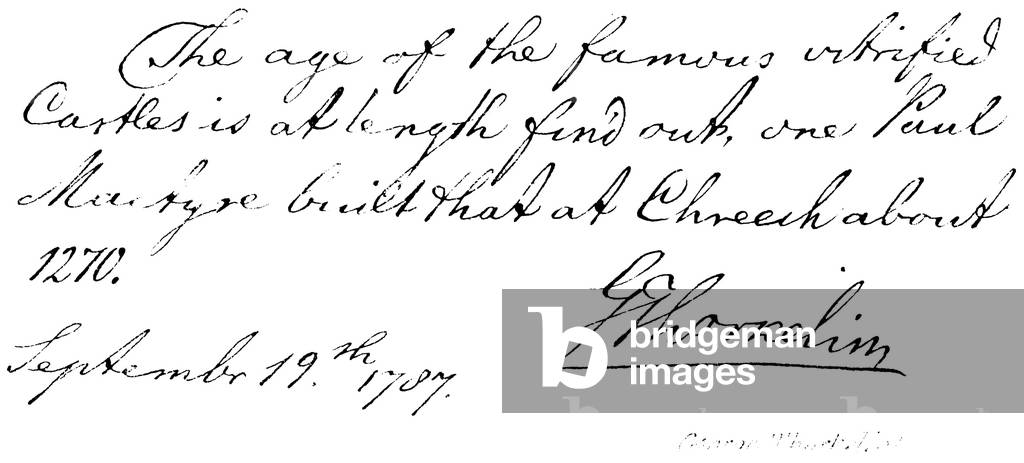 The age of the famous vitrified
Castles is at length find out, one Paul
Mactyre built that at Chreech about
1270.
G Thorkelin
September 19.th 1787.
bridgeman
images